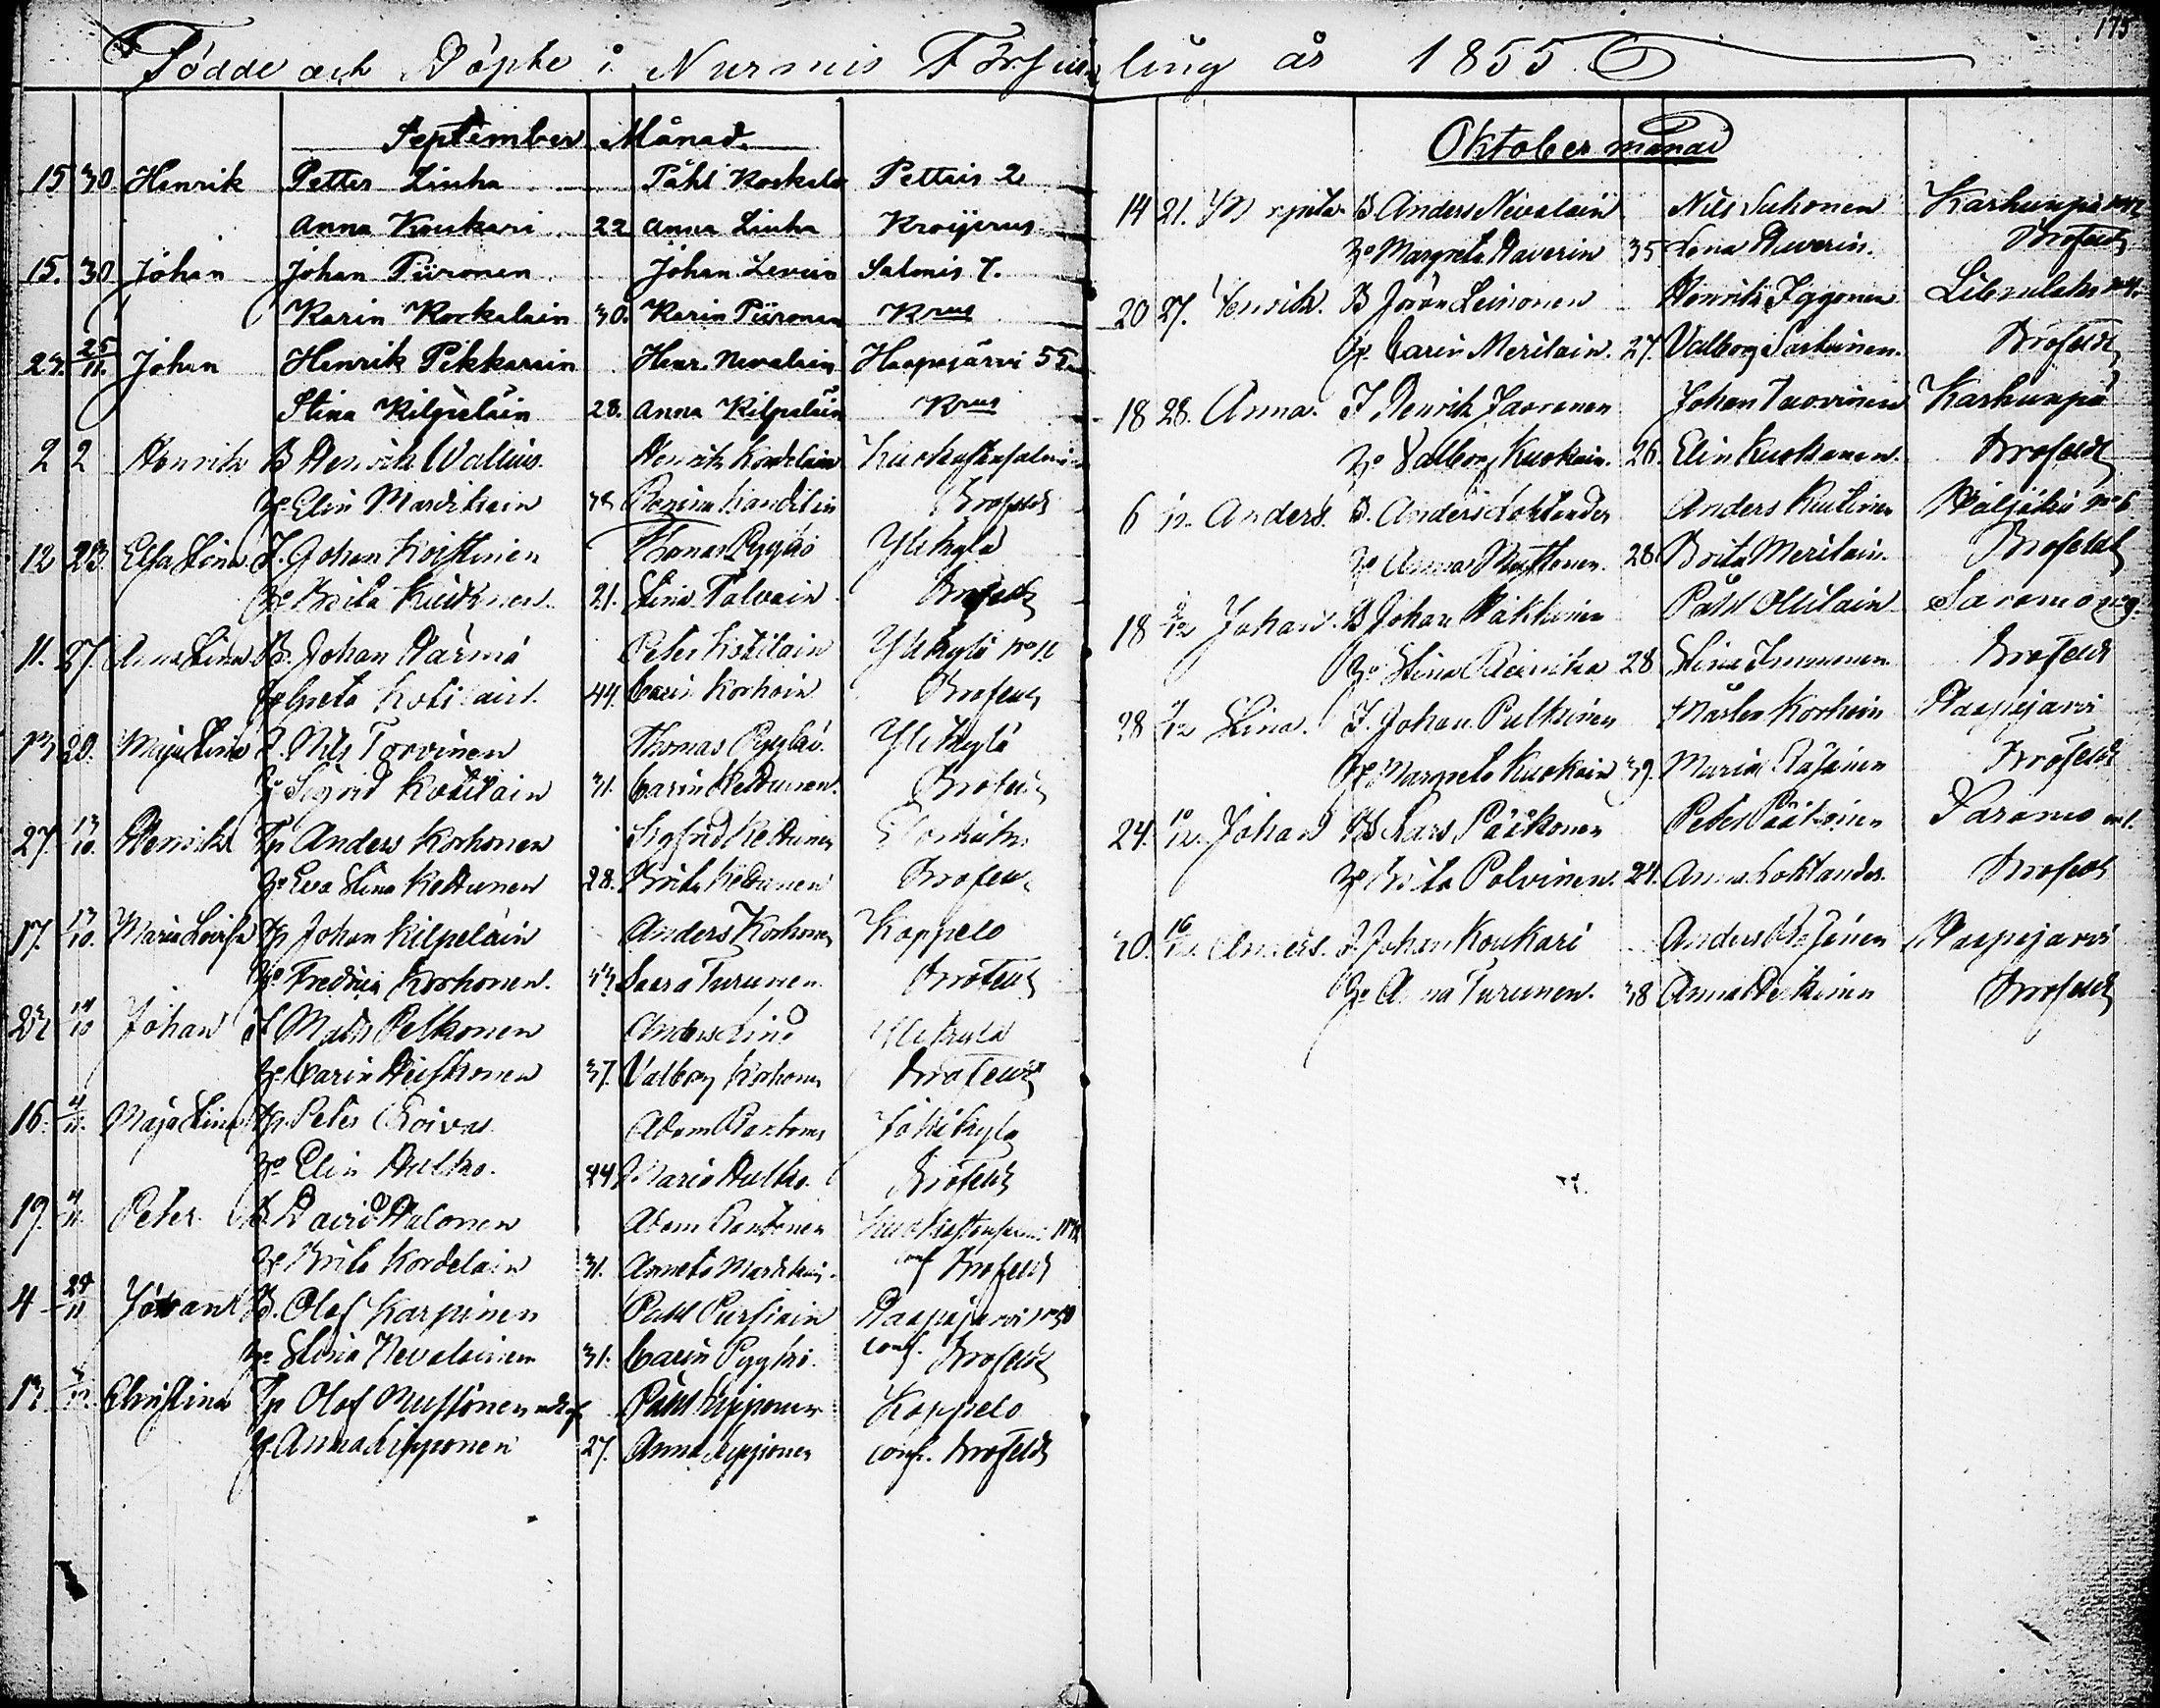 175
Födde och Döpte i Nurmis Församling år 1855
September Månad.
15 30. Henrik Petter Linha Påhl Koskelo Pettris 2
Anna Koukari 22 Anna Linha Kroÿerus
15. 30 Johan Johan Piironen Johan Levin Salmis 7.
Karin Korkalain 30. Karin Piironen Krus
23. 25/11. Johan Henrik Pikkarain Henr. Nevalain Haapajärvi 55
Stina Kilpeläin 28. Anna Kilpeläin Krus
2 2 Henrik B Henrik Wallius. Henrik Kordelain
H:o Elin Mardikain Brofeldt
12 23. Elsa Stina I. Johan Koistinen Thomas Pyykkö Ylikylä
H:o Brita 21. Stina Talvain Brofeldt
11. 27. Anna Stina B. Johan Härmä Peter Kotilain Ylikylä No 11
H:o Greta Kotilain. 44. Carin Korhoin Brofeldt
13 20. Maja Stina I. Nils Torvinen Thomas Pyykkö. Ylikylä
H:o Sigrid Kotilain 31. Carin Kettunen. Brofeldt
27. 13/10. Henrik Tp Anders Korhonen Sigfrid Kettunen
H:o Eva Stina Kettunen 28. Brita Kettunen Brofeldt
17. 13/10. Maria Lovisa Tp Johan Kilpeläin Anders Korhonen Koppelo
H:o Fredrica Korhonen. 33 Saara Turunen Brofeldt
14/10 Johan I Matts Pelkonen Anders Lind Ylikylä
H:o Carin Heiskonen 37. Valborg Korhonen Brofeldt
16. 4/11. Maja Stina Tp. Peter Roivas Adam Rantonen Jokikylä
H:o Elin Hulko. 24 Maria Hulko. Brofeldt
19. 4/11. Peter B David Halonen Adam Rantonen
H:o Brita Kordelain 31. Anneta Mardikain. conf Brofeldt
4 Johan B. Olof Karpinen Påhl Pursiain Haapajärvi No 30
H:o Stina Nevalainen 31. Carin Pyykkö. conf. Brofeldt
13. Christina Tp Olof Mustonen Påhl Lipponen Koppelo
H:o Anna Lipponen 27. Anna Lipponen conf. Brofeldt
Oktober månad
14 21. B Anders Nevalain Nils Suhonen Karhunpä
H:o Margreta Haverin 35. Lena Haverin. Brofeldt
20 27. Henrik. B Jöran Leinonen Henrik Iggonen
H:o Carin Merilain. 27. Valborg Brofeldt
18 28. Anna. I Henrik Johan Karhunpä
H:o Valborg Kuokain. 26. Elin Kuokanen. Brofeldt
6 Anders. B. Anders Loktander Anders No 6
H:o Anna Mustonen. 28. Brita Merilain. Brofeldt
18 Johan. B Johan Häkkinen Påhl Ollilain Saramo No 9.
H:o Stina 28 Stina Immonen Brofeldt
28 Stina. I. Johan Pulkinen Mårten Korhoin Haapajarvi
H:o Margreta Kuokain 39. Maria Brofeldt
24. 10/12. Johan B Lars Pääkonen Peter Pääkonen Saramo
H:o Brita Polvinen. 24. Anna Loktander. Brofeldt
30. Anders. I Johan Koukari Anders Haapajarvi
H:o Anna Turunen. 38 Anna Brofeldt